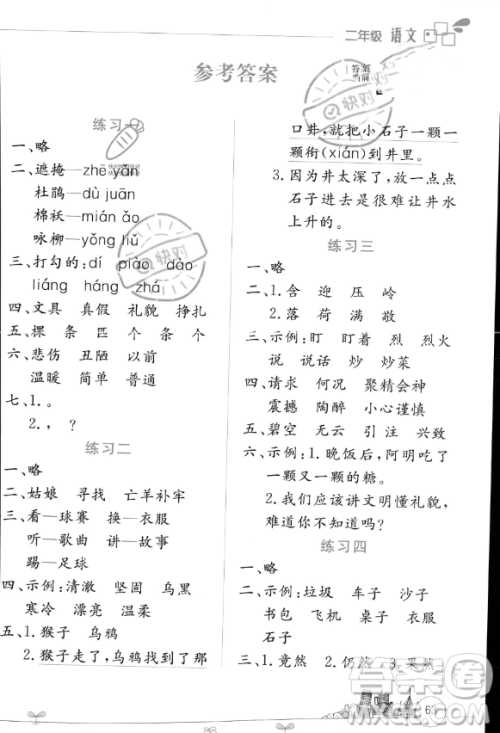 二年级 语文
参考答案
练习一
一、略
二、遮掩—zhē yǎn
杜鹃—dù juān
棉袄—mián ǎo
咏柳—yǒng liǔ
三、打勾的:dí piào dào
liáng háng zhá
四、文具 真假 礼貌 挣扎
五、棵 条 匹 个 条 个
六、悲伤 丑陋 以前
温暖 简单 普通
七、1.。
2.， ？
练习二
一、略
二、姑娘 寻找 亡羊补牢
三、看—球赛 换—衣服
听—歌曲 讲—故事
踢—足球
四、示例:清澈 坚固 乌黑
寒冷 漂亮 温柔
五、1.猴子 乌鸦
2.猴子走了,乌鸦找到了那
口井,就把小石子一颗一
颗衔(xián)到井里。
3.因为井太深了,放一点点
石子还是很难让井水
上升的。
练习三
一、略
二、1.含 迎 压 岭
2.落 荷 满 敬
三、示例:盯 盯着 烈 烈火
说 说话 炒 炒菜
四、请求 何况 聚精会神
震撼 陶醉 小心谨慎
五、碧空 无云 引注 兴致
六、示例:1.晚饭后,阿明吃了
一颗又一颗的糖。
2.我们应该讲文明懂礼貌,
难道你不知道吗?
练习四
一、略
二、示例:垃圾 车子 沙子
书包 飞机 桌子 衣服
石子
三、1.竟然 2.仍然 3.果然